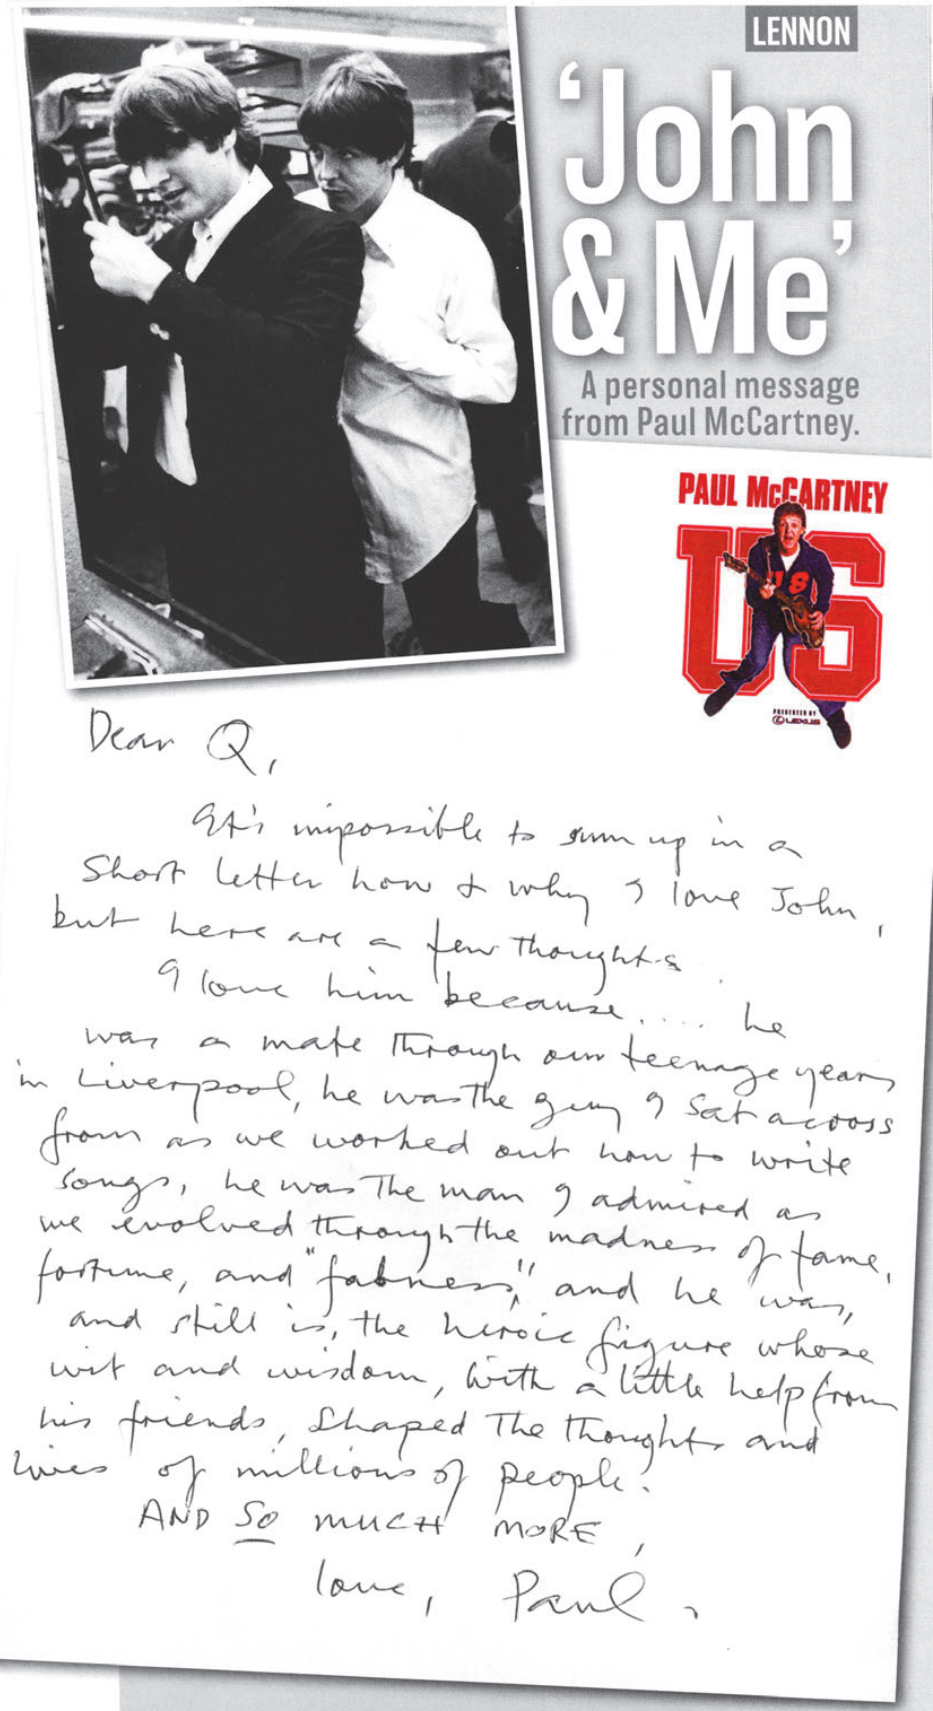 LENNON
‘John
& Me’
A personal message
from Paul McCartney.
PAUL McCARTNEY
US
US
PRESENTED BY
LEXUS
Dear Q,
It's impossible to sum up in a
short letter how & why I love John,
but here are a few thoughts.
I love him because.... he
was a mate through our teenage years
in Liverpool, he was the guy I sat across
from as we worked out how to write
songs, he was the man I admired as
we evolved through the madness of fame,
fortune, and "fabness", and he was,
and still is, the heroic figure whose
wit and wisdom, with a little help from
his friends, shaped the thoughts and
lives of millions of people.
AND SO MUCH MORE,
love, Paul.